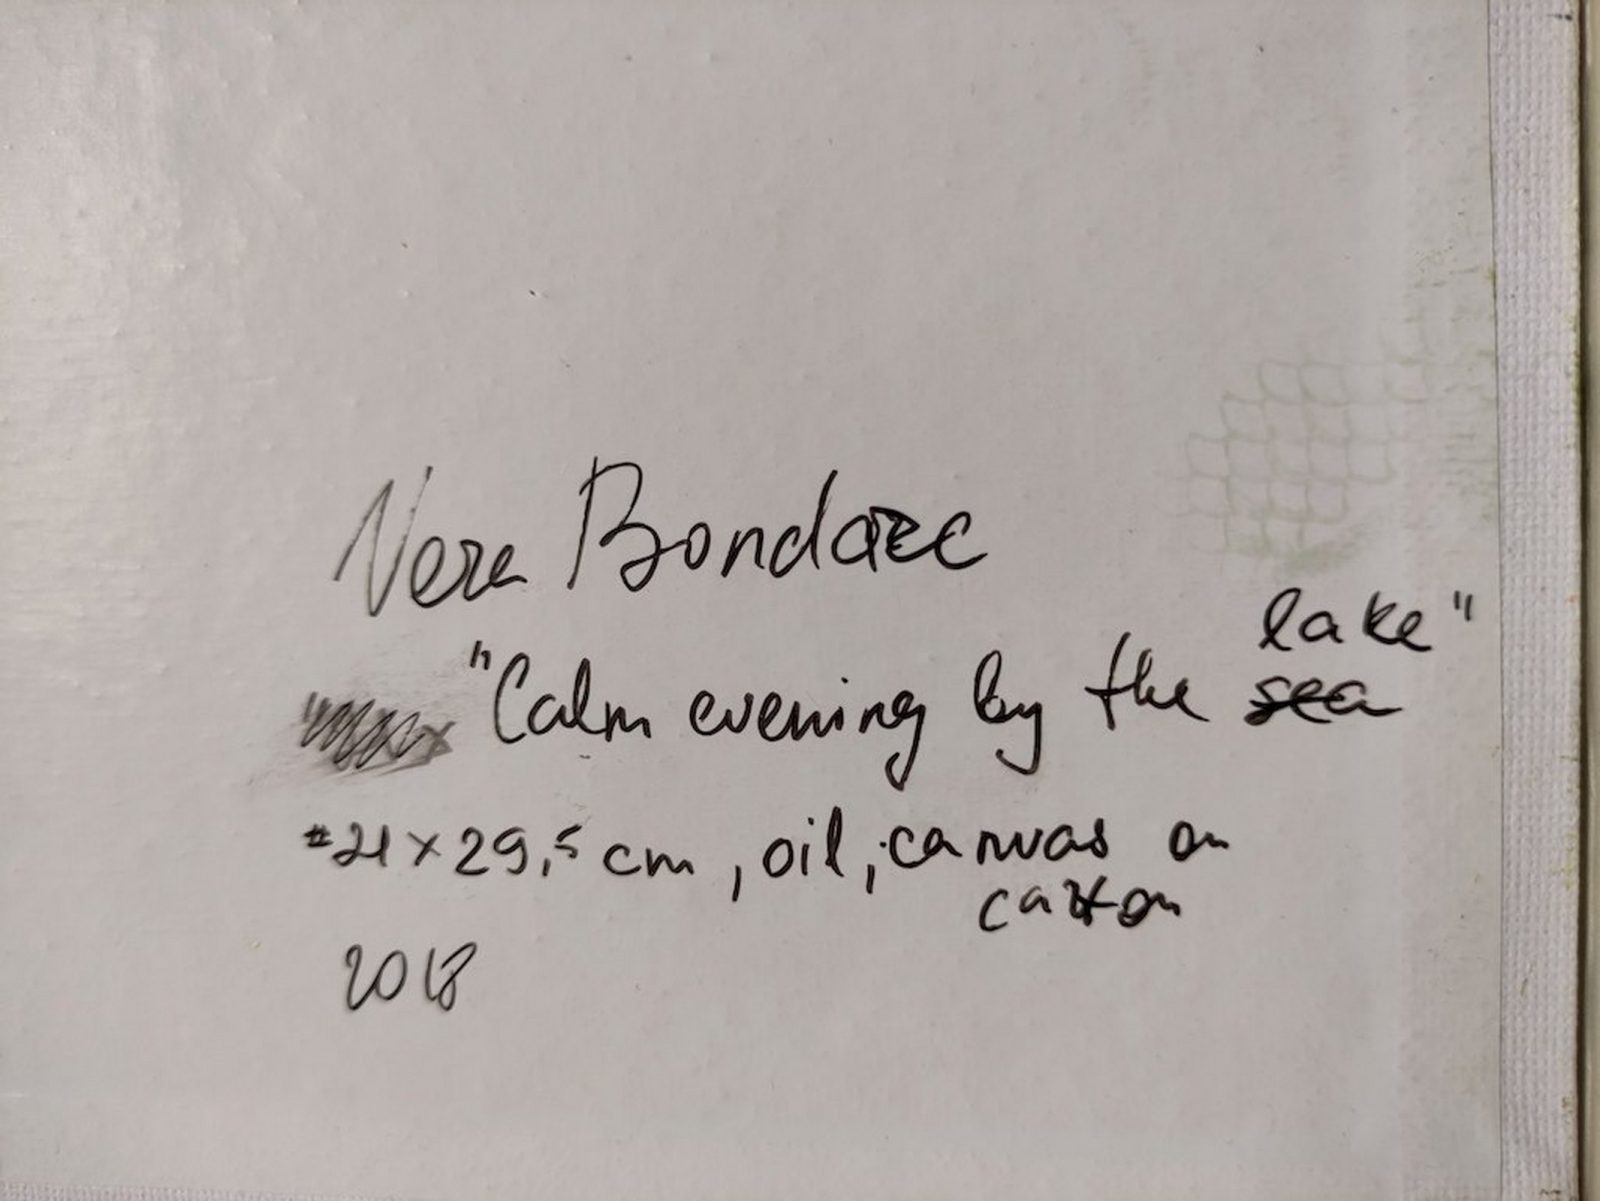 Vera Bondare
"Calm evening by the sea lake"
21 x 29,5 cm, oil, canvas on
carton
2018